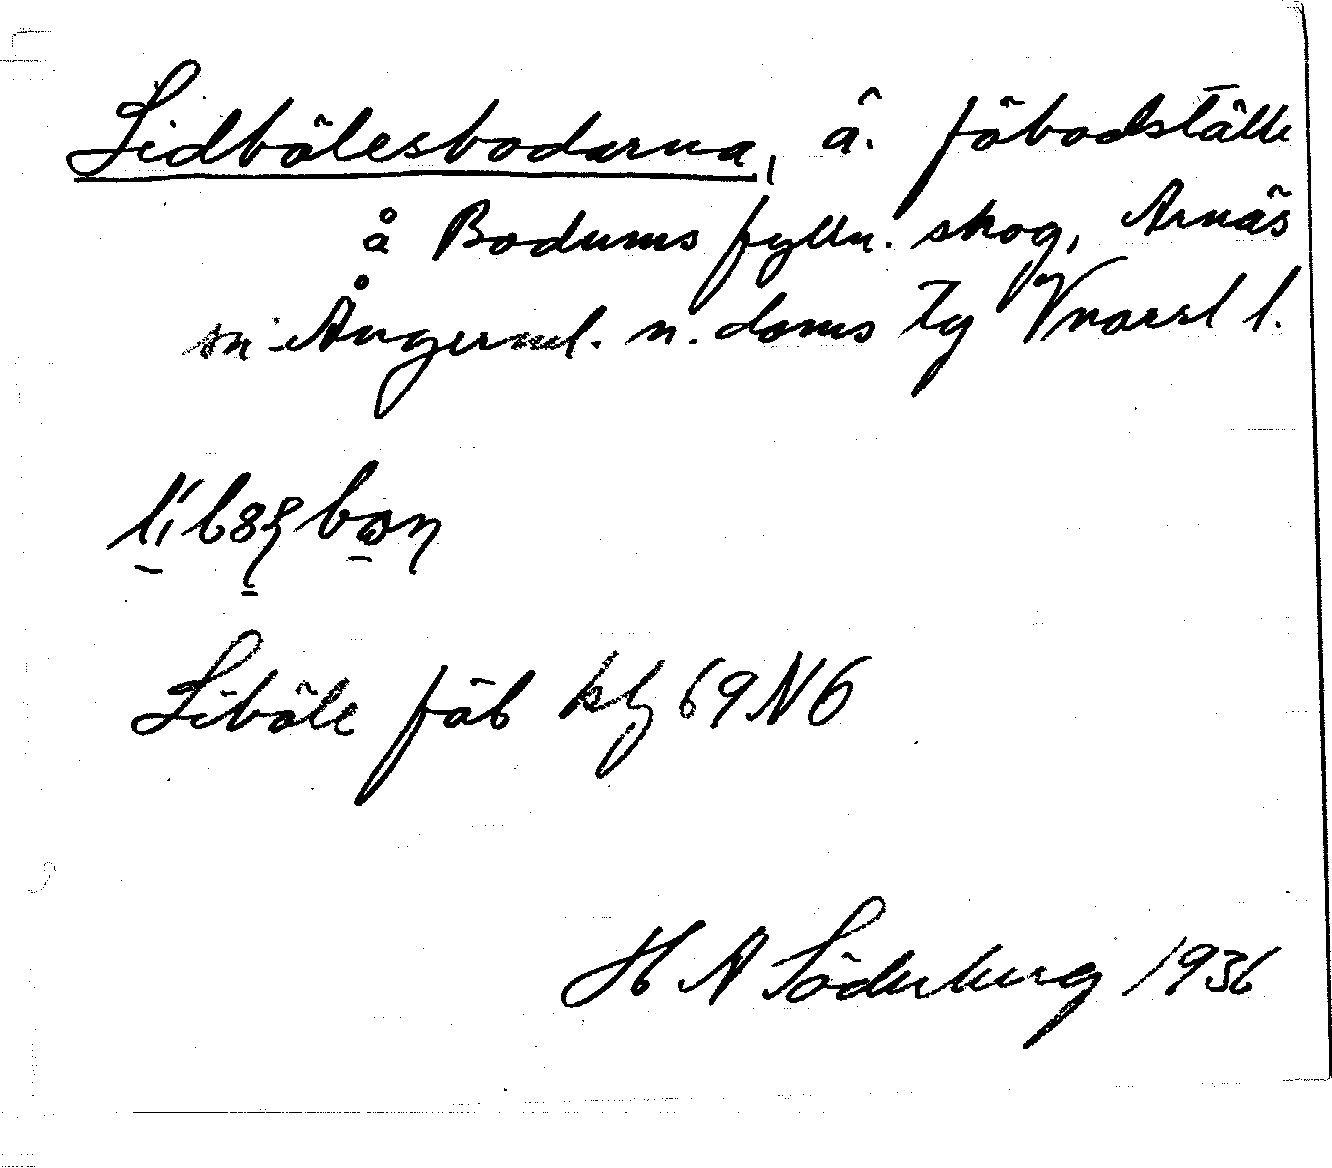 Lidbölesbodarna, ä. fäbodställe
å Bodums fylln. skog, Arnäs
sn Ångerml. n. doms Tg Vnorrl l.
Liböle fäb kbl 69 N6
H A Söderberg 1936